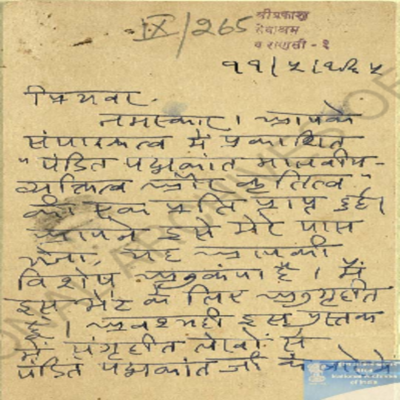 IX/265
श्रीप्रकाश
सेवाश्रम
वाराणसी - १
११/५/१९६५
प्रियवर,
नमस्कार। आपके
संपादकत्व में प्रकाशित
"पंडित पद्मकांत मालवीय-
व्यक्तित्व और कृतित्व"
की एक प्रति प्राप्त हुई।
आपने इसे मेरे पास
भेजा, यह आपकी
विशेष अनुकंपा है। मैं
इस भेंट के लिए अनुगृहीत
हूँ। अवश्य ही इस पुस्तक
में संगृहीत लेखों से
पंडित पद्मकांत जी के